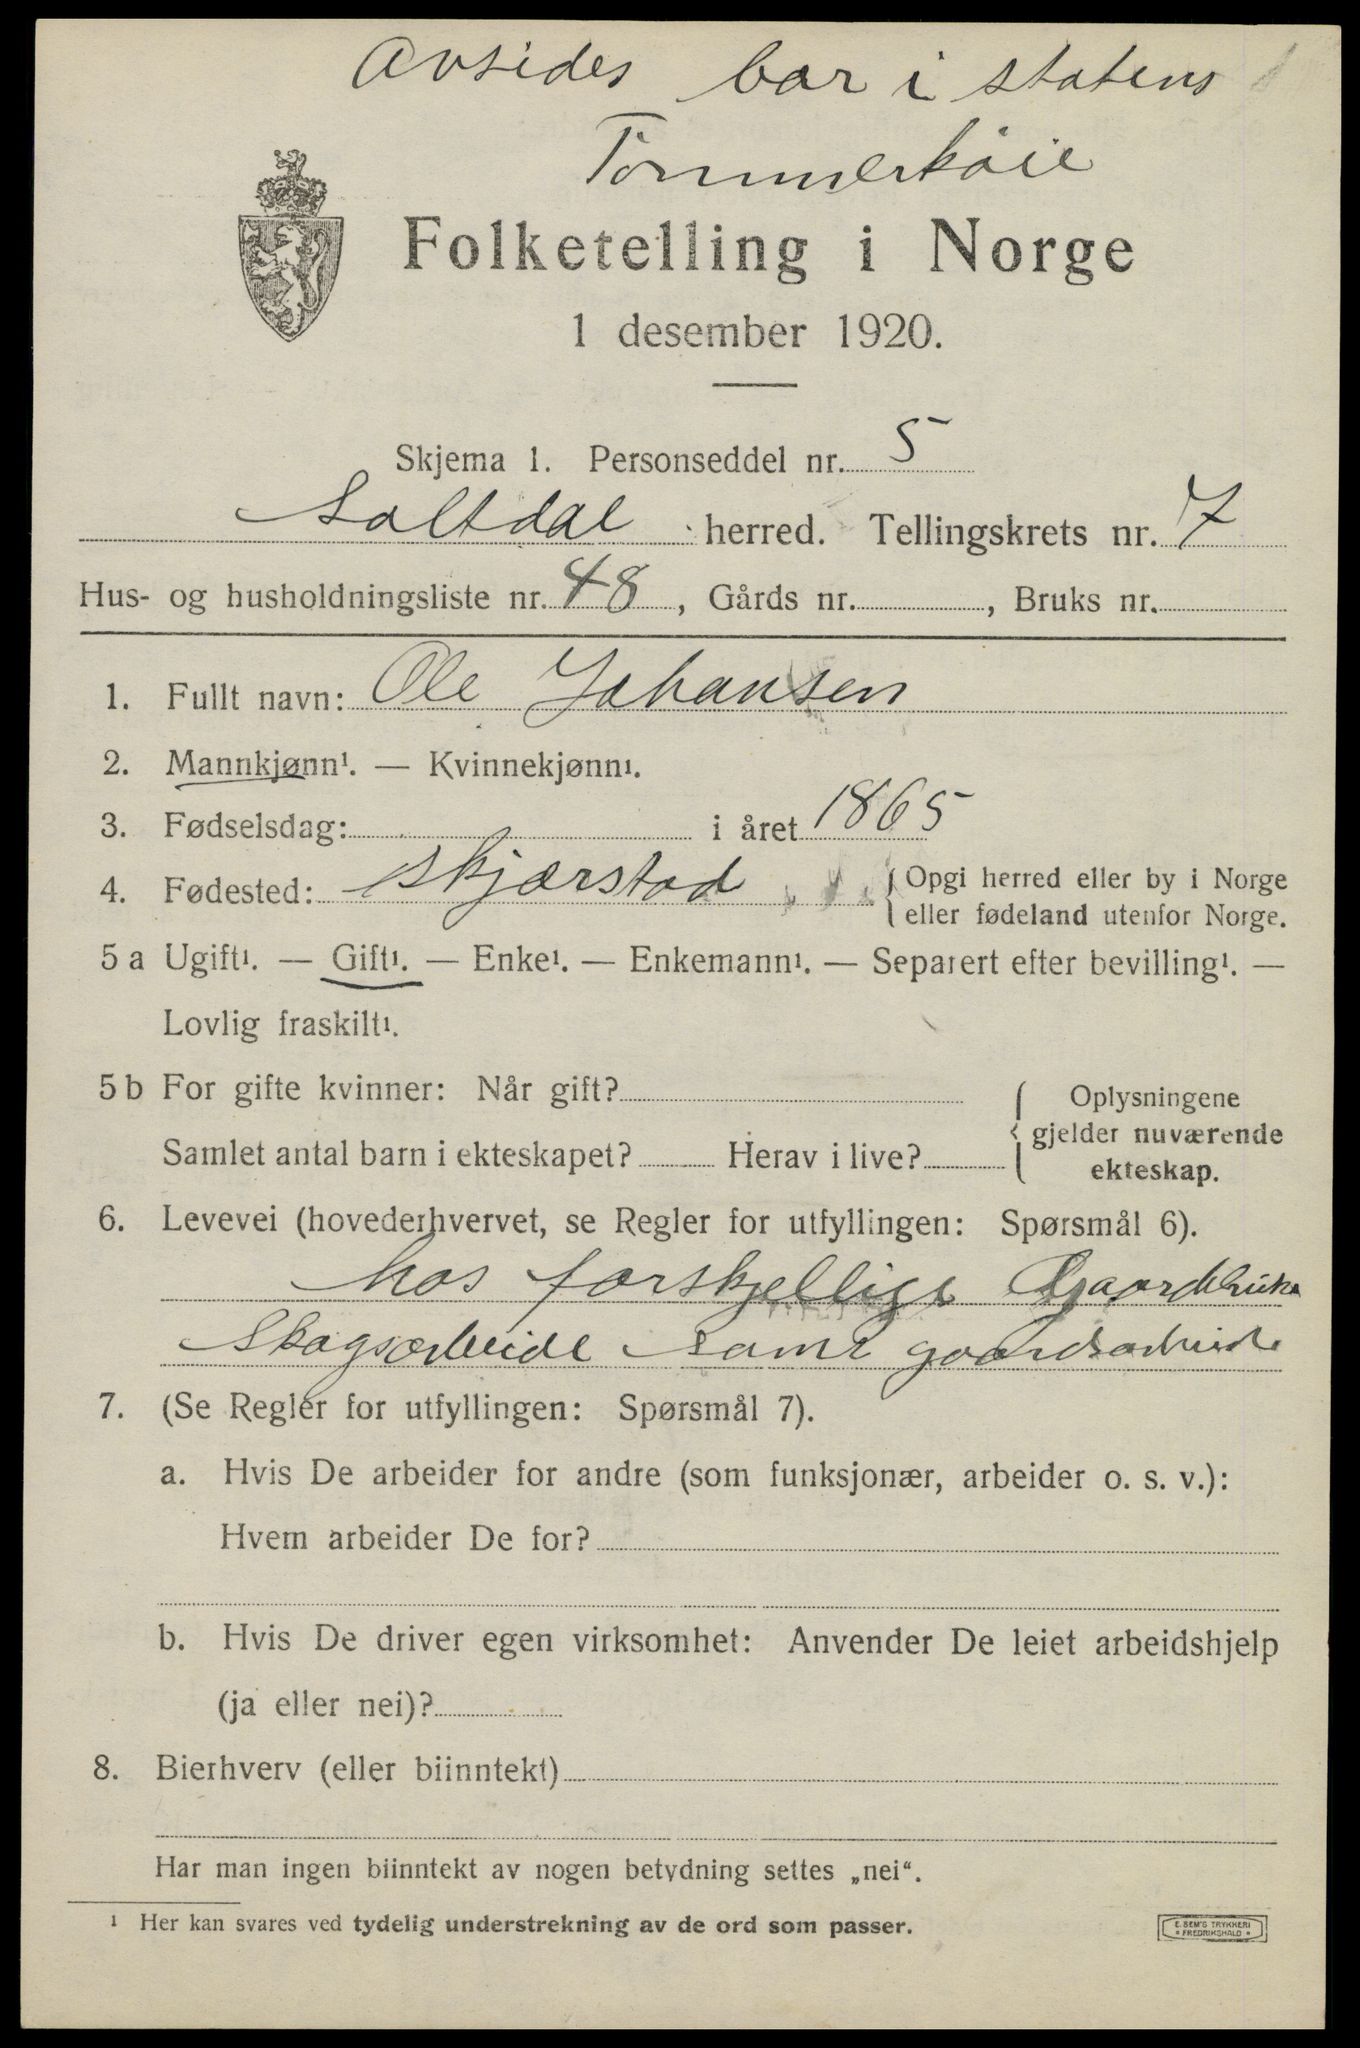 Avsides bor i statens
Tømmerkøie
Folketelling i Norge
1 desember 1920.
Skjema 1. Personseddel nr. 5
Saltdal herred. Tellingskrets nr. 7
Hus- og husholdningsliste nr. 48, Gårds nr. , Bruks nr.
1. Fullt navn: Ole Johansen
2. Mannkjønn¹. — Kvinnekjønn¹.
3. Fødselsdag: i året 1865
4. Fødested: Skjærstad {Opgi herred eller by i Norge
eller fødeland utenfor Norge.
5 a Ugift¹. — Gift¹. — Enke¹. — Enkemann¹. — Separert efter bevilling¹. —
Lovlig fraskilt¹.
5 b For gifte kvinner: Når gift?
Samlet antal barn i ekteskapet? Herav i live?
Oplysningene
gjelder nuværende
ekteskap.
6. Levevei (hovederhvervet, se Regler for utfyllingen: Spørsmål 6).
hos forskjellige
Skogsarbeide samt gaardsarbeide
7. (Se Regler for utfyllingen: Spørsmål 7).
a. Hvis De arbeider for andre (som funksjonær, arbeider o. s. v.):
Hvem arbeider De for?
b. Hvis De driver egen virksomhet: Anvender De leiet arbeidshjelp
(ja eller nei)?
8. Bierhverv (eller biinntekt)
Har man ingen biinntekt av nogen betydning settes „nei“.
¹ Her kan svares ved tydelig understrekning av de ord som passer.
E. SEM'S TRYKKERI
* FREDRIKSHALD *